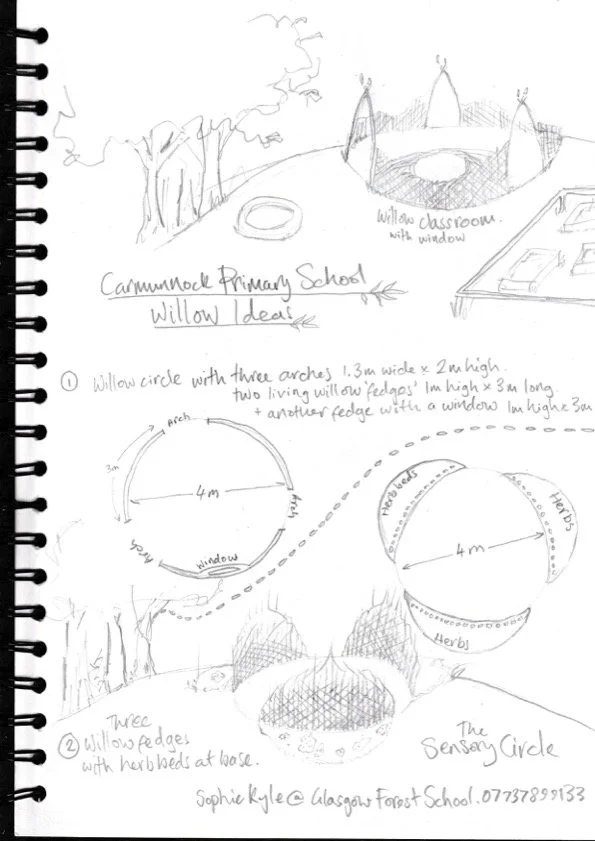 Willow classroom.
with window
Carmunnock Primary School
Willow Ideas
① Willow circle with three arches 1.3m wide x 2m high.
two living willow 'fedges' 1m high x 3m long.
+ another fedge with a window 1m high x 3m
Arch
3m
4m
Arch
Arch
Window
Herb beds
Herbs
4m
Herbs
Three
② Willow fedges
with herb beds at base.
The
Sensory Circle
Sophie Kyle @ Glasgow Forest School. 07737899133